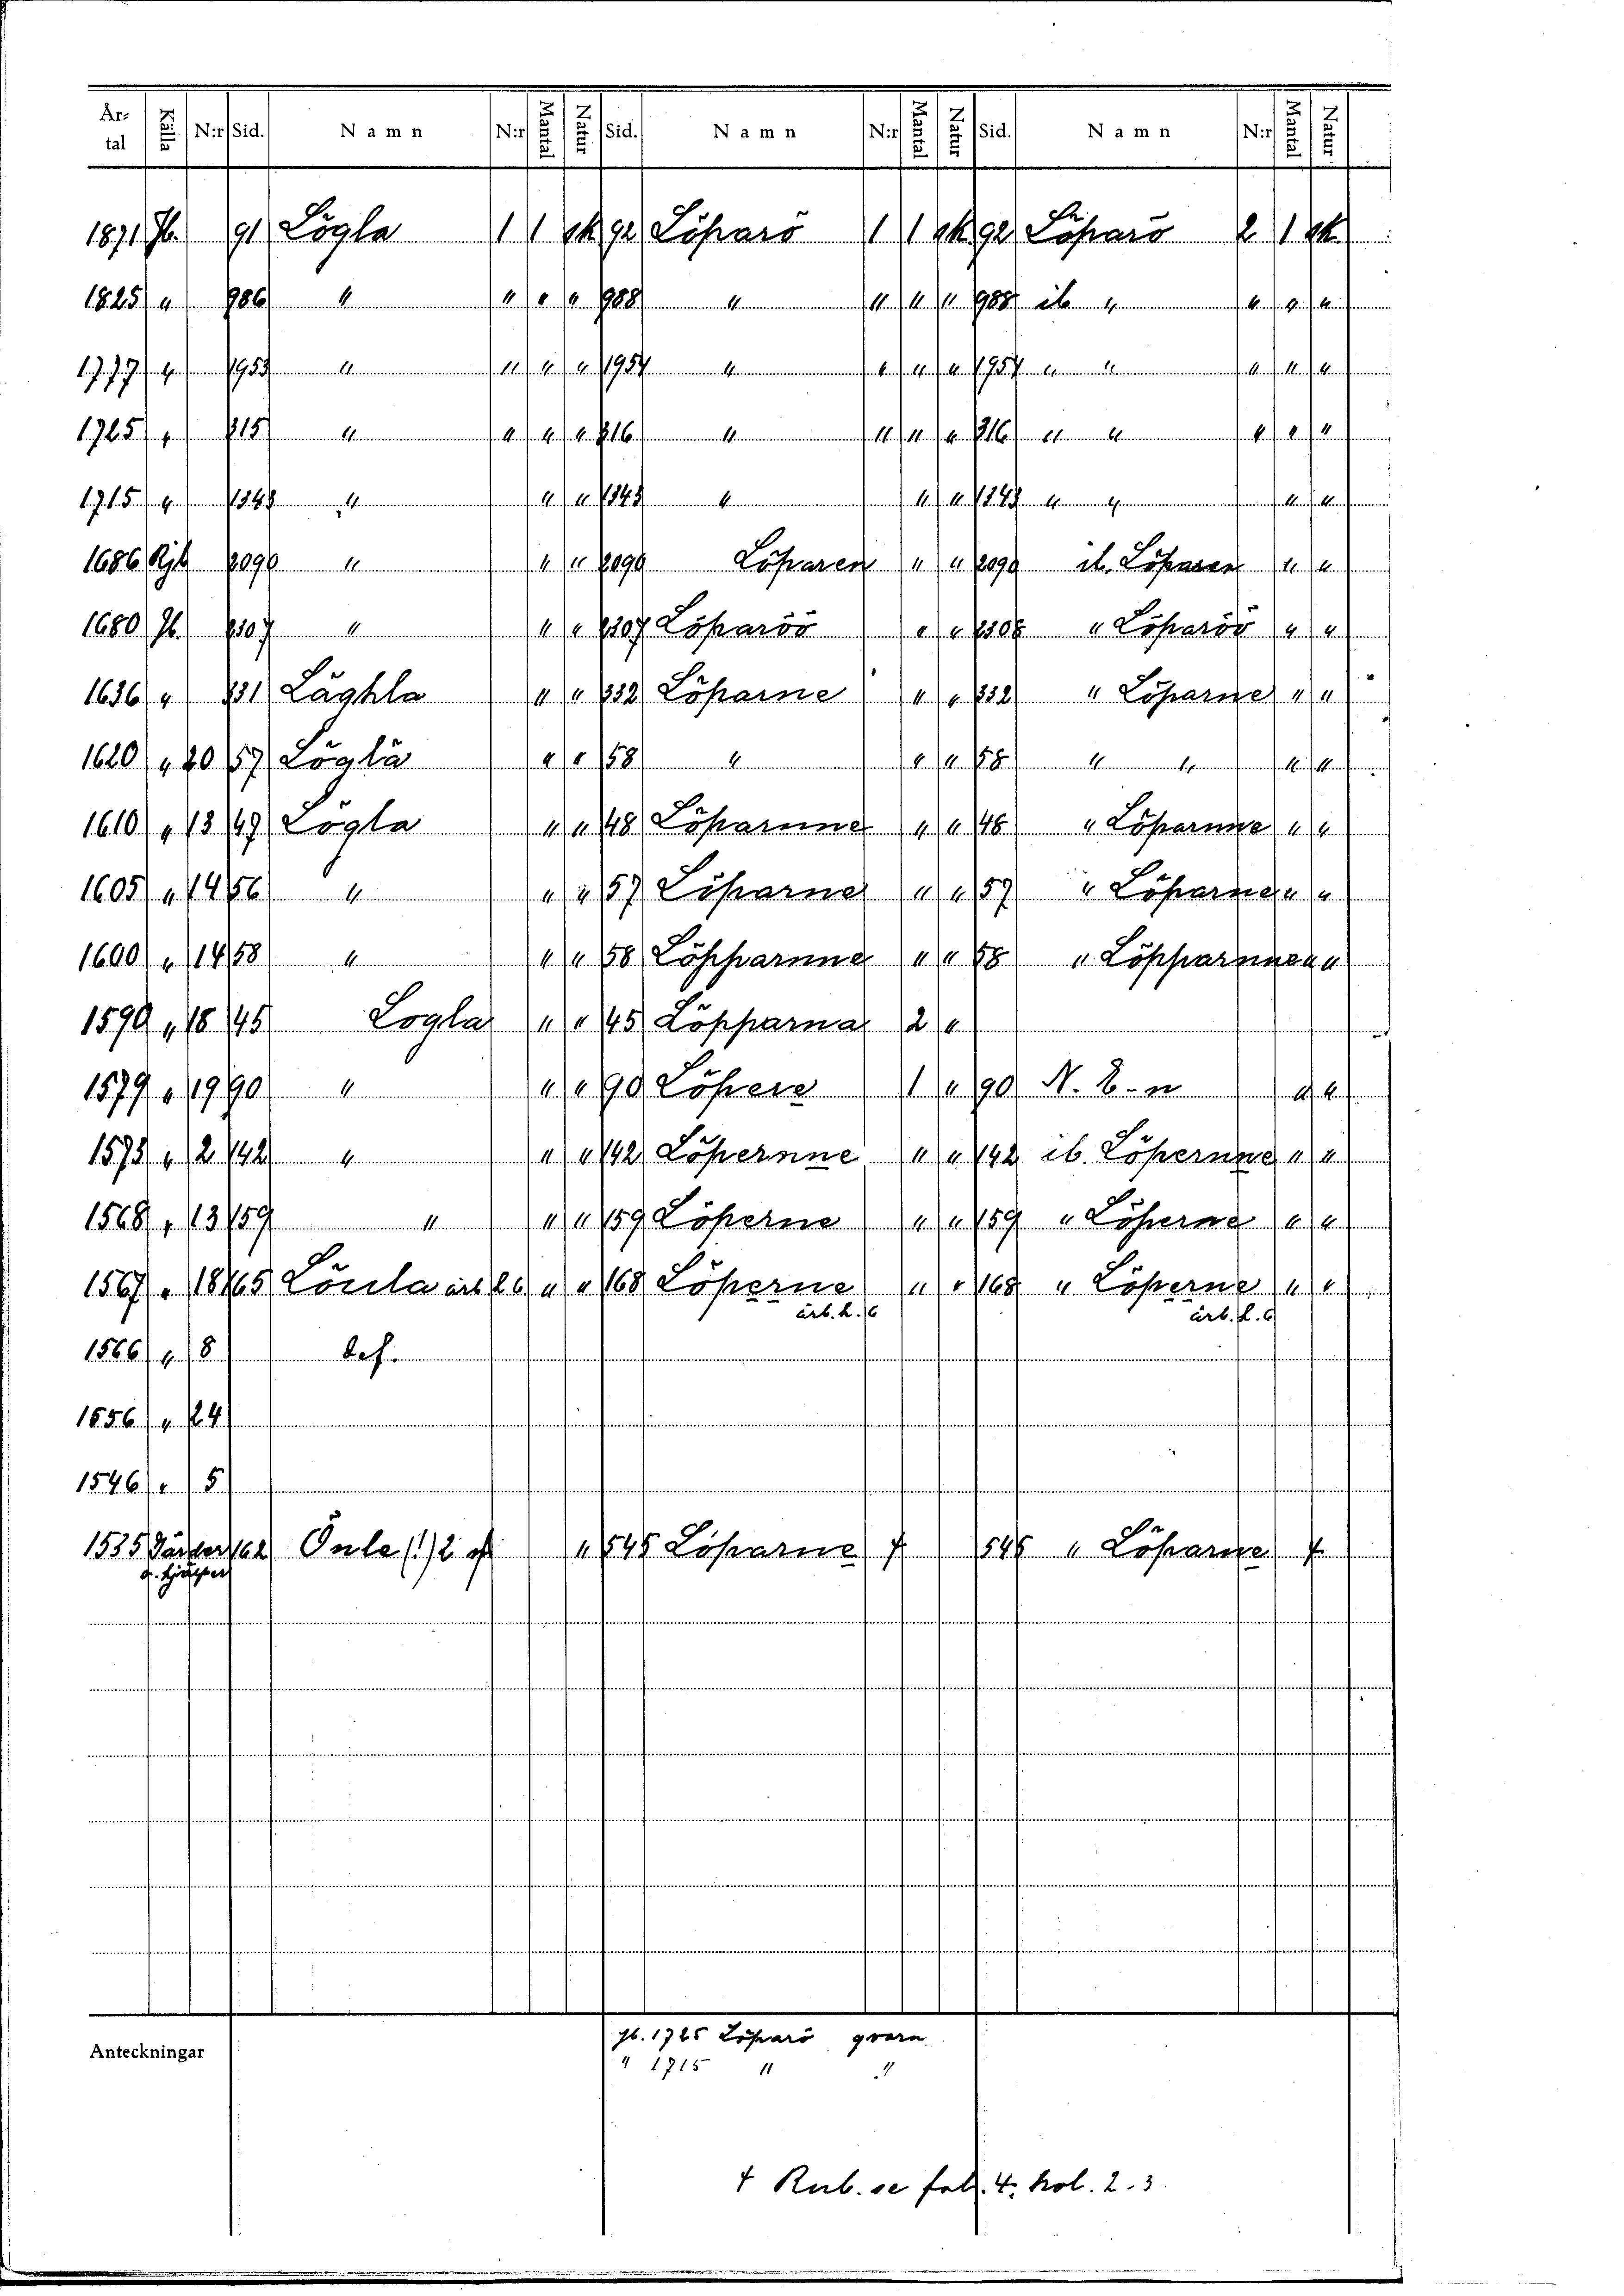 År-tal Källa N:r Sid. Namn N:r Mantal Natur Sid. Namn N:r Mantal Natur Sid. Namn N:r Mantal Natur
1871 Jb. 91 Lögla 1 1 sk 92 Löparö 1 1 sk 92 Löparö 2 1 sk
1825 " 986 " " " " 988 " " " " 988 ib " " " "
1777 " 1953 " " " " 1954 " " " " 1954 " " " " "
1725 " 815 " " " " 816 " " " " 816 " " " " "
1715 " 1343 " " " 1343 " " " 1343 " " " "
1686 Rjb 2090 " " " 2090 Löparen " " 2090 ib. Löparen " "
1680 Jb. 2307 " " " 2307 Löparöö " " 2308 " Löparöö " "
1636 " 331 Läghla " " 332 Löparne " " 332 " Löparne " "
1620 " 20 57 Löglä " " 58 " " " 58 " " " "
1610 " 13 49 Lögla " " 48 Löparnne " " 48 " Löparnne " "
1605 " 14 56 " " " 57 Löparne " " 57 " Löparne " "
1600 " 14 58 " " " 58 Löpparnne " " 58 " Löpparnne " "
1590 " 18 45 Logla " " 45 Löpparna 2 "
1579 " 19 90 " " " 90 Löpere 1 " 90 N. E-n " "
1573 " 2 142 " " " 142 Löpernne " " 142 ib. Löpernne " "
1568 " 13 159 " " " 159 Löperne " " 159 " Löperne " "
1567 " 18 165 Löula ärb 26 " " 168 Löperne " " 168 " Löperne " "
ärb. h. 6 ärb. h. 6
1566 " 8 def.
1556 " 24
1546 " 5
1535 Gärder 162 Önle (!) 2 " 545 Löparne † 545 " Löparne †
o. hjälper
Anteckningar
Jb. 1725 Löparö qvarn
" 1715 " "
† Rub. se fol. 4. kol. 2-3